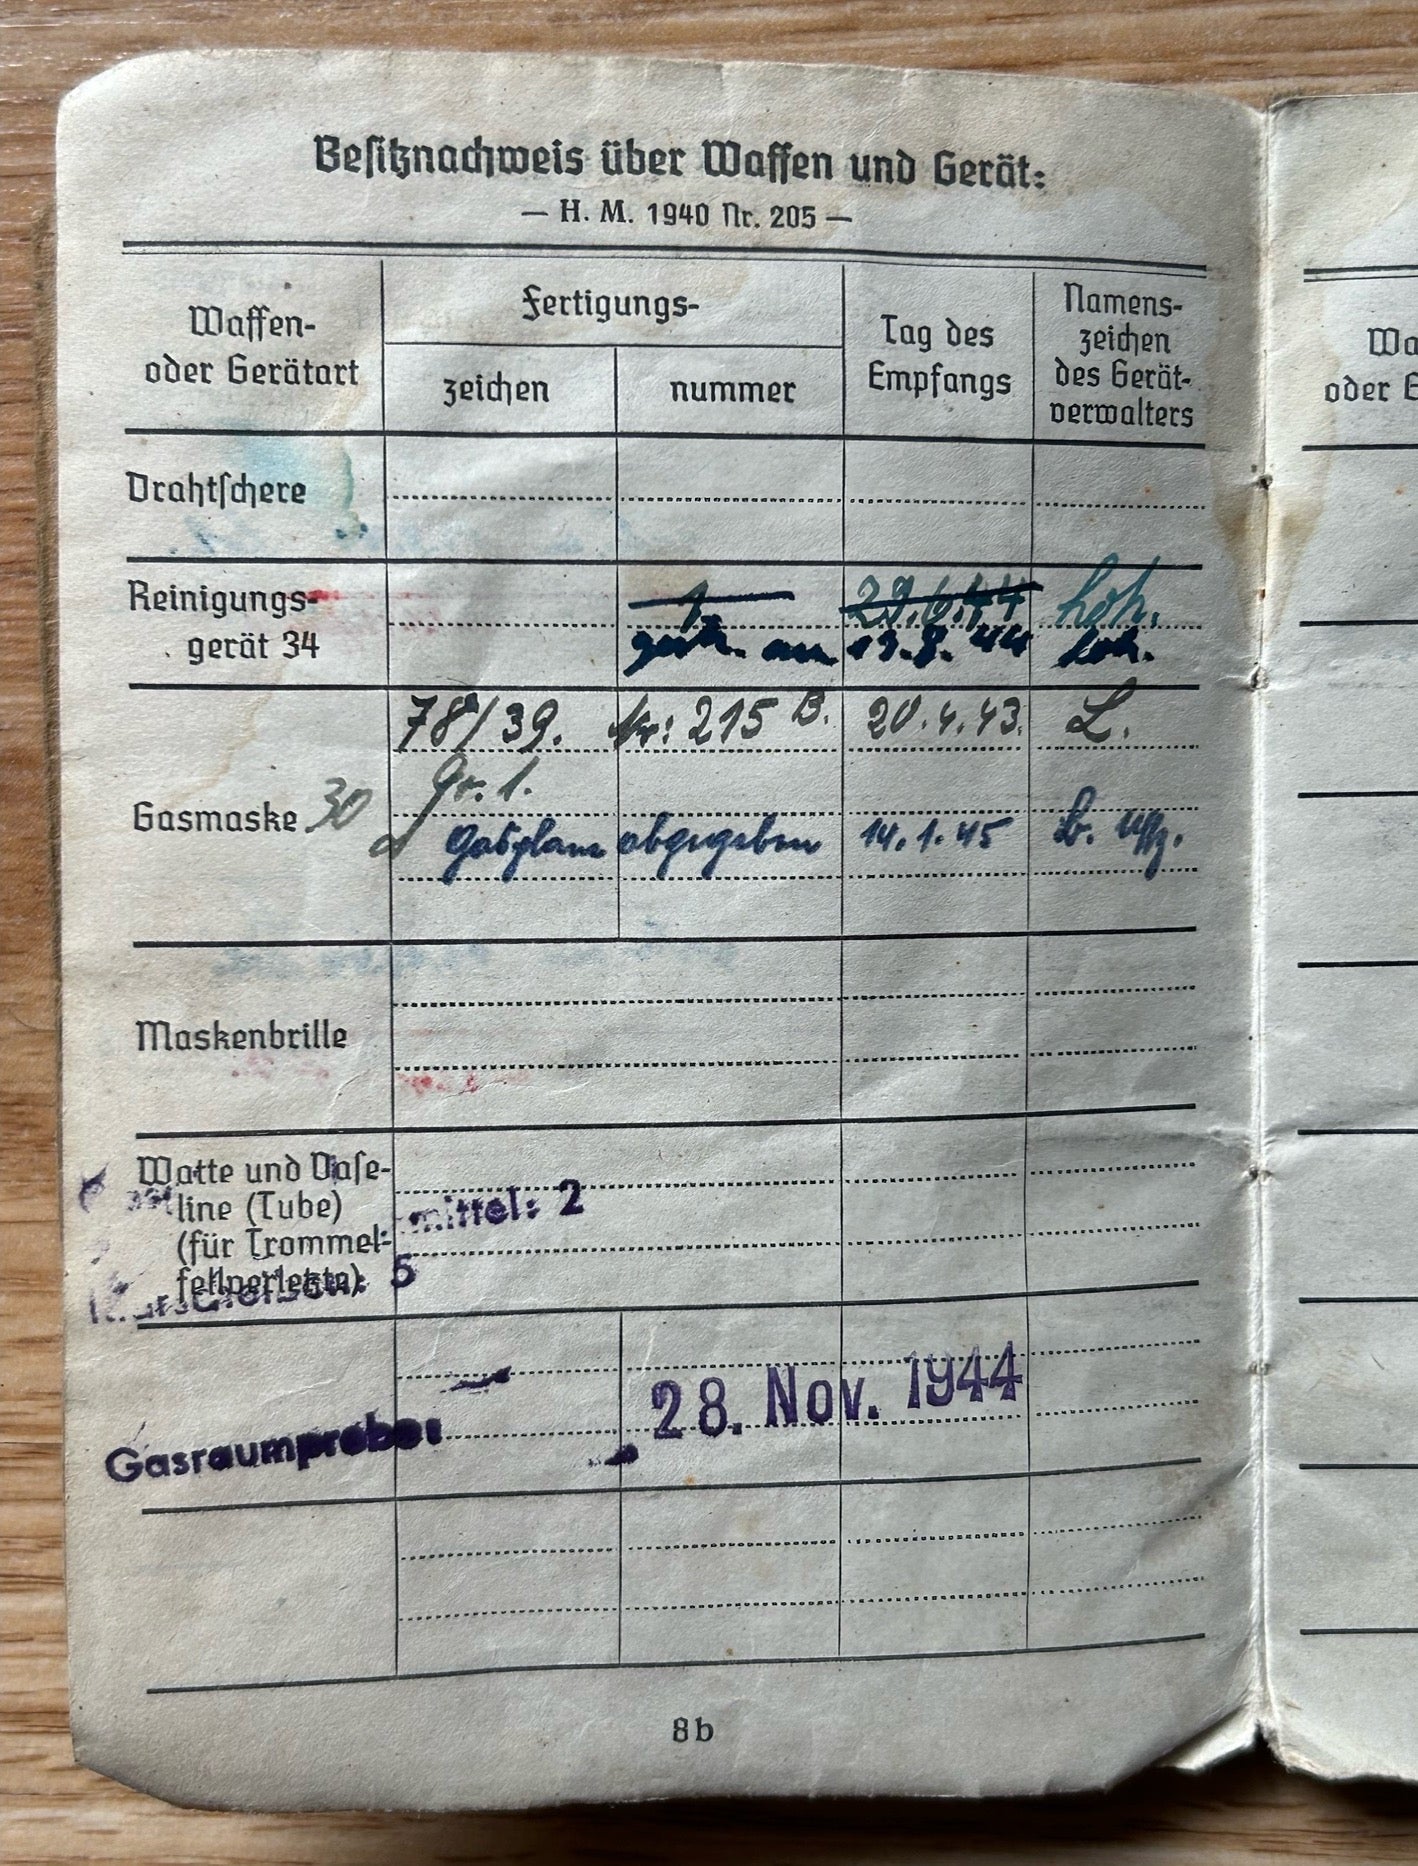 Besitznachweis über Waffen und Gerät:
— H. M. 1940 Nr. 205 —
Waffen-
oder Gerätart
Fertigungs-
zeichen
nummer
Tag des
Empfangs
Namens-
zeichen
des Gerät-
verwalters
Drahtschere
Reinigungs-
gerät 34
1 29.6.44 Hoh.
am 19.8.44 Hoh.
Gasmaske 30
78/39. Nr: 215 B. 20.4.43. L.
Gr. 1.
Gasplane abgegeben 14.1.45 Uffz.
Maskenbrille
Watte und Vase-
line (Tube)
(für Trommel-
fellverletzte)
mittel: 2
5
Gasraumprobe:
28. Nov. 1944
8b
Wa
oder G